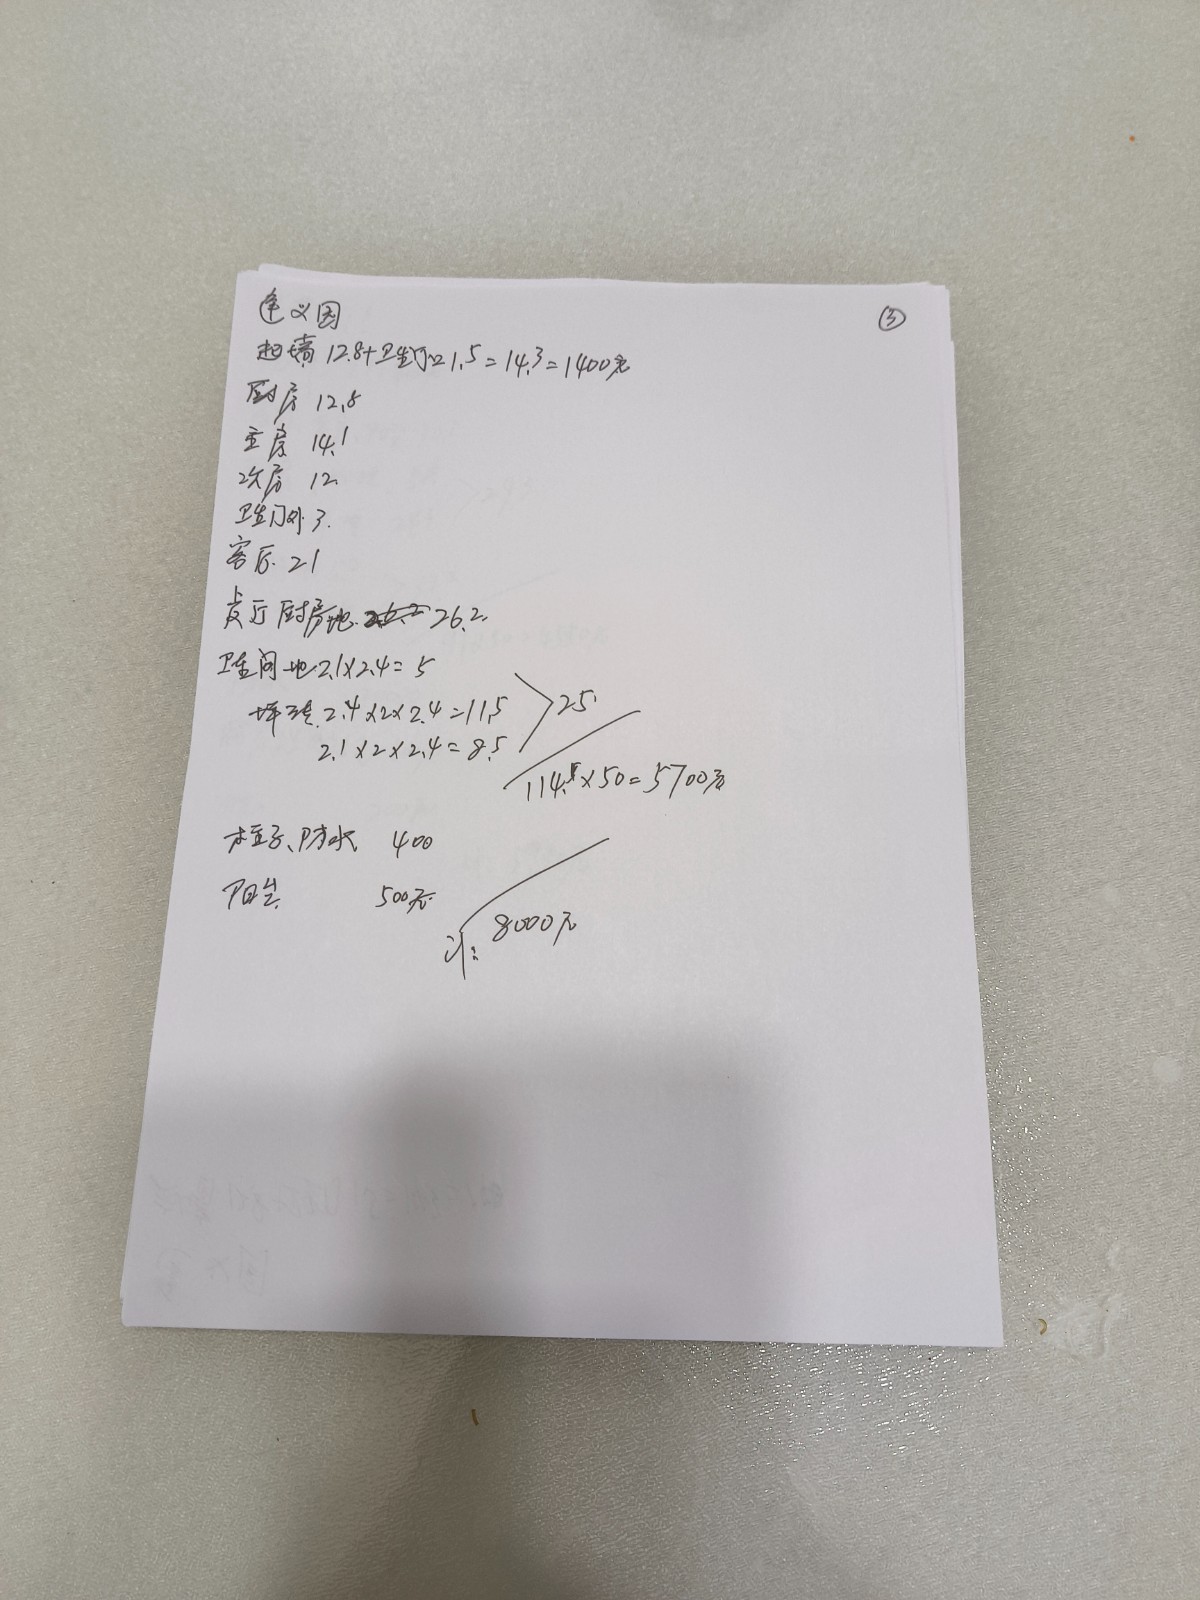 ③
起墙 12.8+卫生门口1.5=14.3=1400元
厨房 12.8
主房 14.1
次房 12
卫生门外 3.
客厅. 21
厨房地. 26.2
卫生间地 2.1×2.4=5
2.4×2×2.4=11.5
2.1×2×2.4=8.5
25
114.5×50=5700元
柱子、防水 400
阳台 500元
计: 8000元